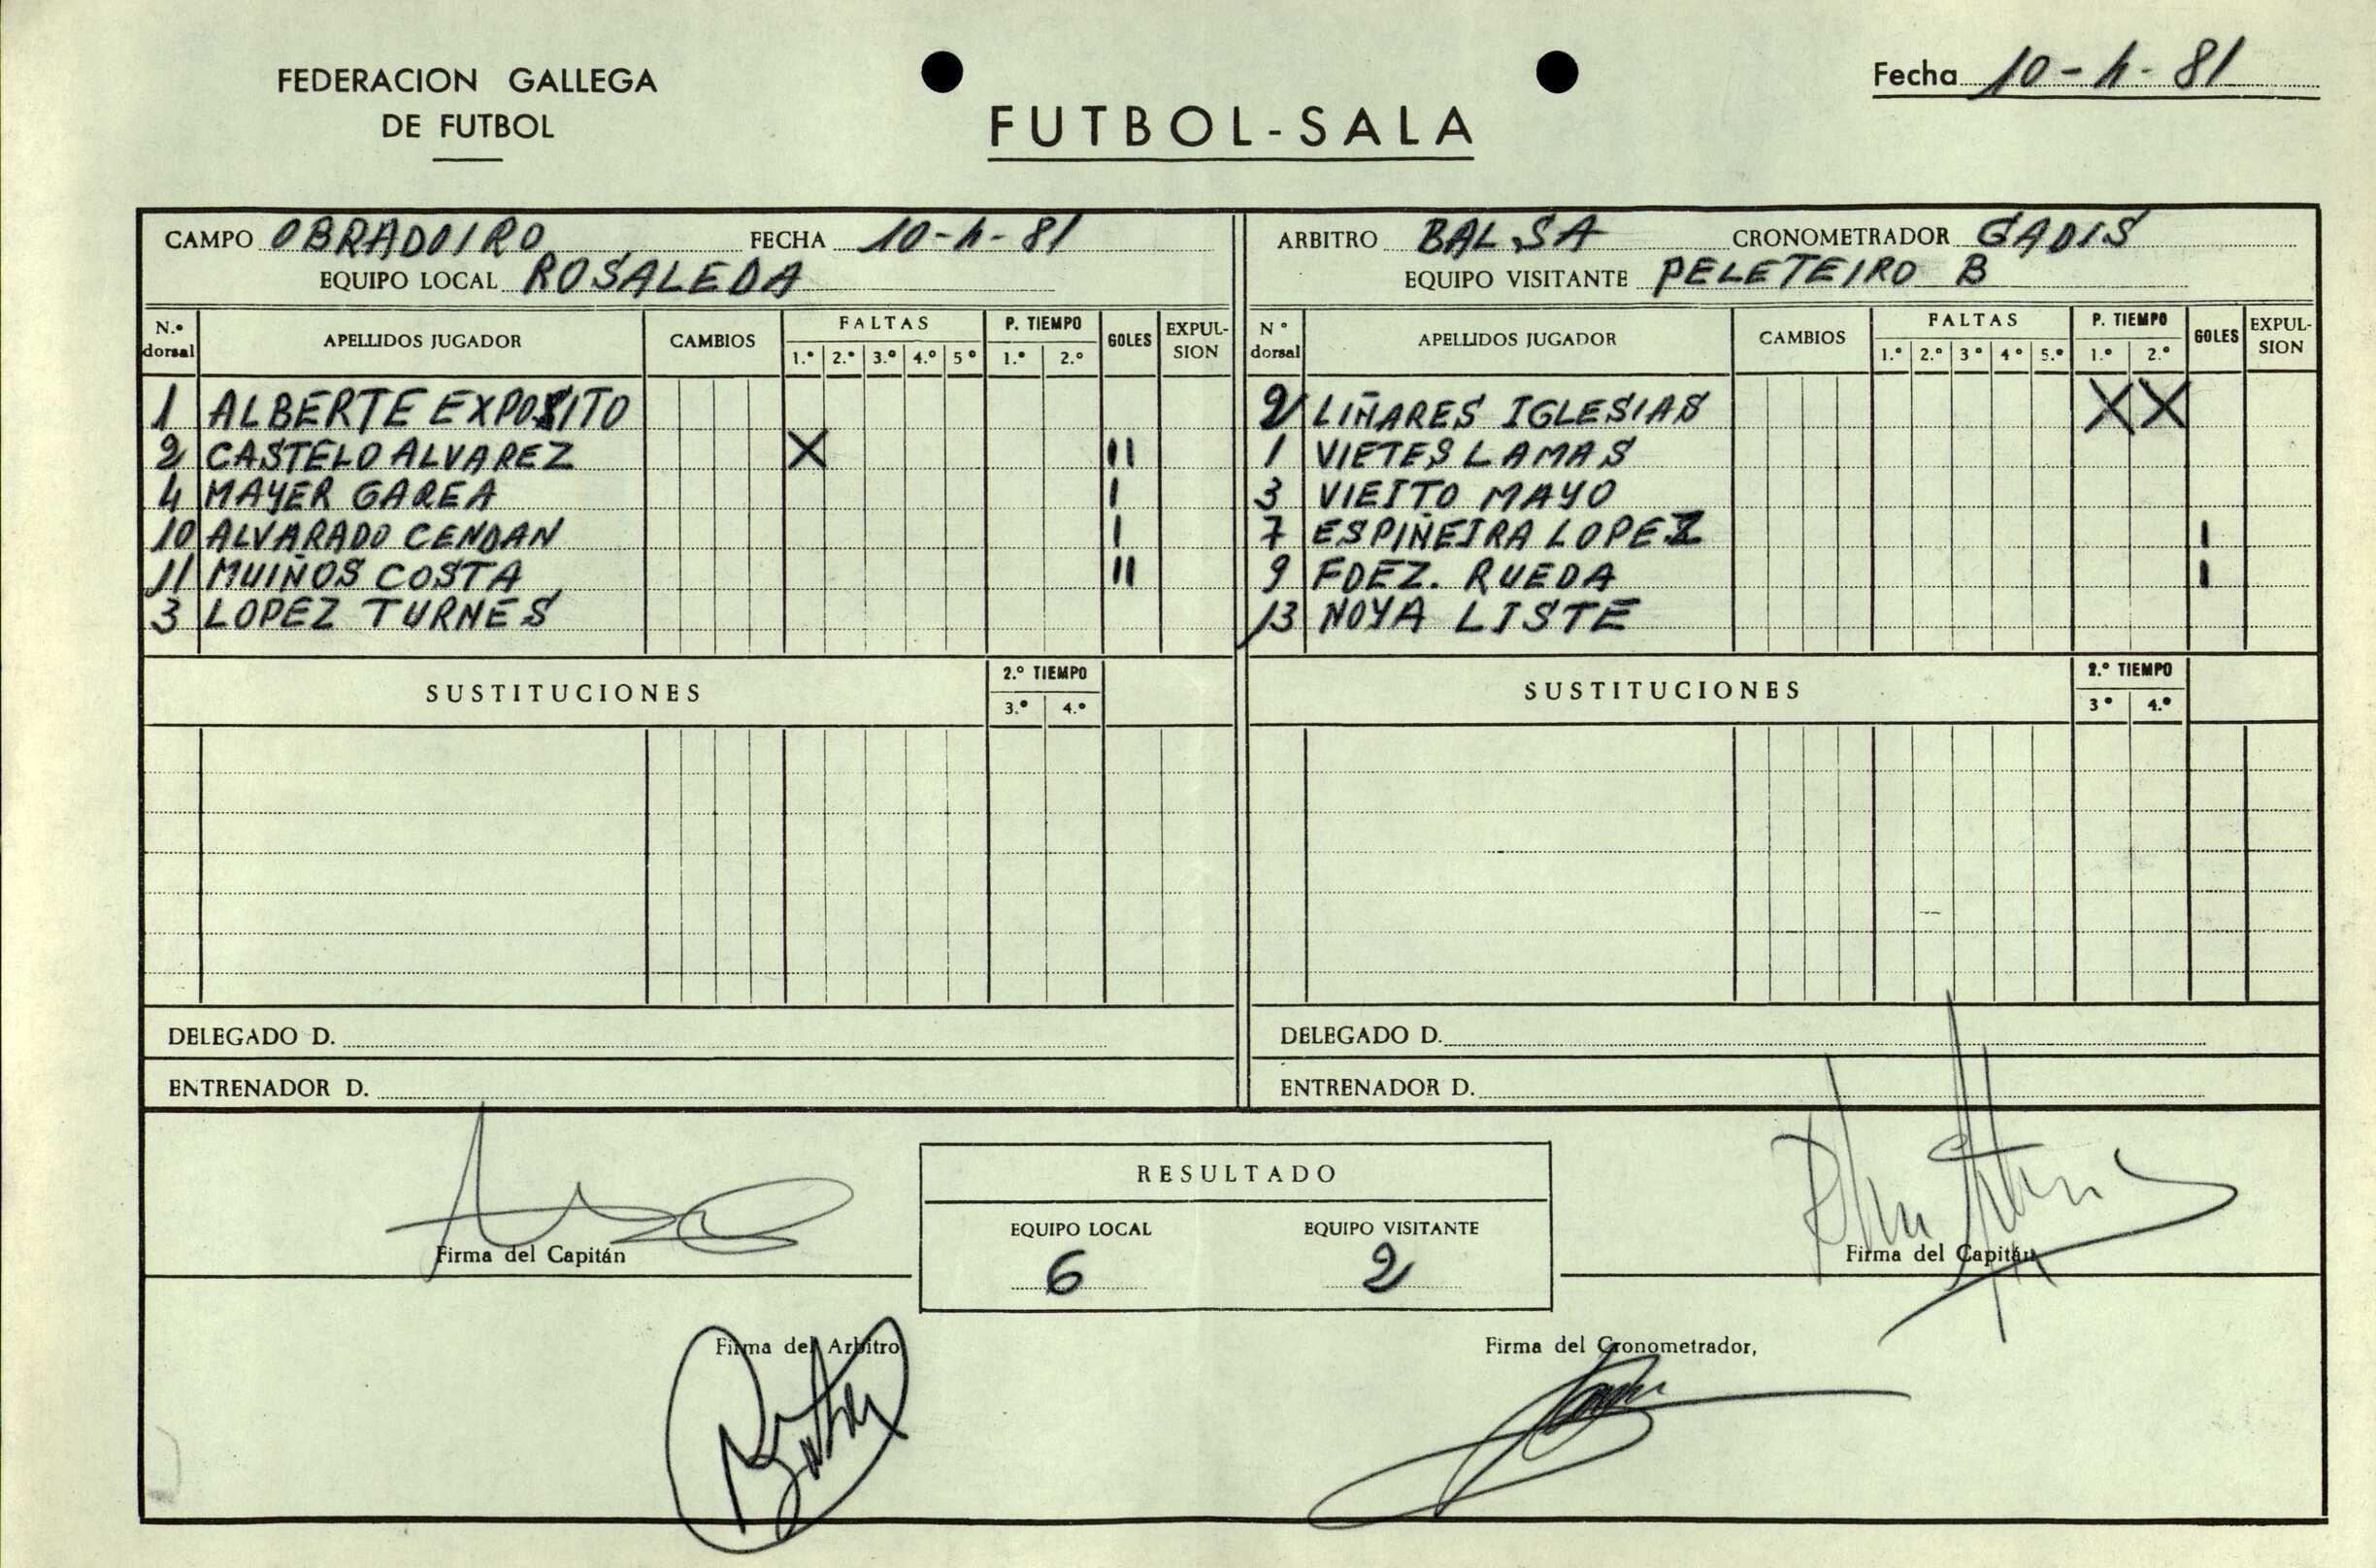 FEDERACION GALLEGA
DE FUTBOL
FUTBOL-SALA
Fecha 10-4-81
CAMPO OBRADOIRO FECHA 10-4-81
EQUIPO LOCAL ROSALEDA
N.º dorsal APELLIDOS JUGADOR CAMBIOS FALTAS 1.º 2.º 3.º 4.º 5º P. TIEMPO 1.º 2.º GOLES EXPULSION
1 ALBERTE EXPOSITO
2 CASTELO ALVAREZ X II
4 MAYER GAREA I
10 ALVARADO CENDAN I
11 MUIÑOS COSTA II
3 LOPEZ TURNES
SUSTITUCIONES 2.º TIEMPO 3.º 4.º
DELEGADO D.
ENTRENADOR D.
ARBITRO BALSA CRONOMETRADOR GADIS
EQUIPO VISITANTE PELETEIRO B
Nº dorsal APELLIDOS JUGADOR CAMBIOS FALTAS 1.º 2.º 3º 4º 5.º P. TIEMPO 1.º 2.º GOLES EXPULSION
2 LIÑARES IGLESIAS X X
1 VIETES LAMAS
3 VIEITO MAYO
7 ESPIÑEIRA LOPEZ I
9 FDEZ. RUEDA I
13 NOYA LISTE
SUSTITUCIONES 2.º TIEMPO 3º 4.º
DELEGADO D.
ENTRENADOR D.
RESULTADO
EQUIPO LOCAL EQUIPO VISITANTE
6 2
Firma del Capitán
Firma del Capitán
Firma del Arbitro
Firma del Cronometrador,